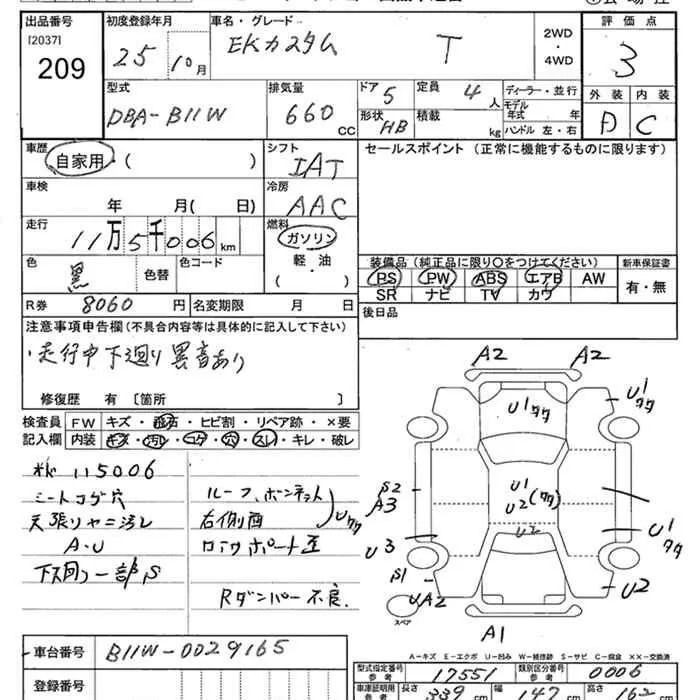 出品番号 初度登録年月 車名・グレード 評価点
[2037]
209
25 10月 EKカスタム T 2WD・4WD 3
型式 排気量 ドア 5 定員 4人 ディーラー・並行 外装 内装
DBA-B11W 660 CC 形状 HB 積載 kg モデル年式 年 A C
ハンドル 左・右
車歴 自家用・( ) シフト IAT セールスポイント(正常に機能するものに限ります)
車検 年 月( 日) 冷房 AAC
走行 11万5千006km 燃料 ガソリン・軽・油・( )
色 黒 色替 色コード
装備品(純正品に限り○をつけてください) 新車保証書
PS PW ABS エアB AW 有・無
SR ナビ TV カワ
R券 8060円 名変期限 月 日 後日品
注意事項申告欄(不具合内容等は具体的に記入して下さい)
・走行中下廻り異音あり
修復歴 有〔箇所 〕
検査員記入欄 FW キズ・飛石・ヒビ割・リペア跡・×要
内装 キズ・汚レ・コゲ・穴・スレ・キレ・破レ
115006
シートコゲ穴
天張リヤニ汚レ
A・U
下回り一部S
ルーフ、ボンネット
右側面
Uタタ
Rダンパー不良.
A2 A2
U1タタ U1タタ
S2 A3 U1 U2(タタ)
U3 U2 U1タタ
S1 UA2 U2
スペア
A1
A-キズ E-エクボ U-凹み W-補修跡 S-サビ C-腐食 ××-交換済
車台番号 B11W-0029165
型式指定番号 参考 17551 類別区分番号 参考 0006
登録番号
車庫証明用 参考 長さ 339cm 幅 147cm 高さ